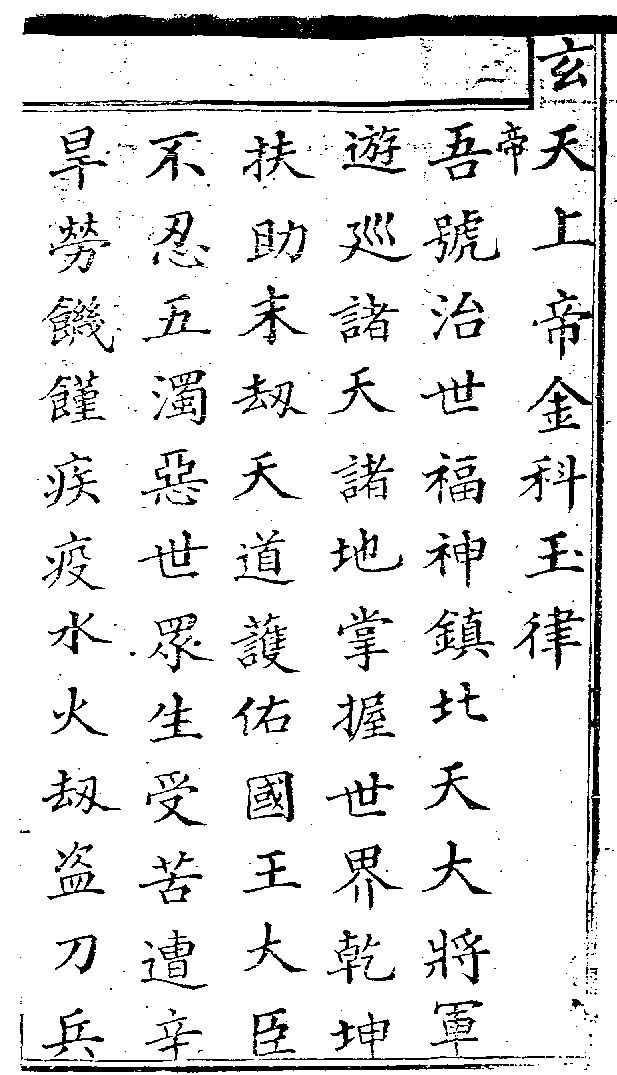 玄天上帝金科玉律
帝
吾號治世福神鎮北天大將軍
遊巡諸天諸地掌握世界乾坤
扶助末刼天道護佑國王大臣
不忍五濁惡世眾生受苦遭辛
旱勞饑饉疾疫水火刼盗刀兵